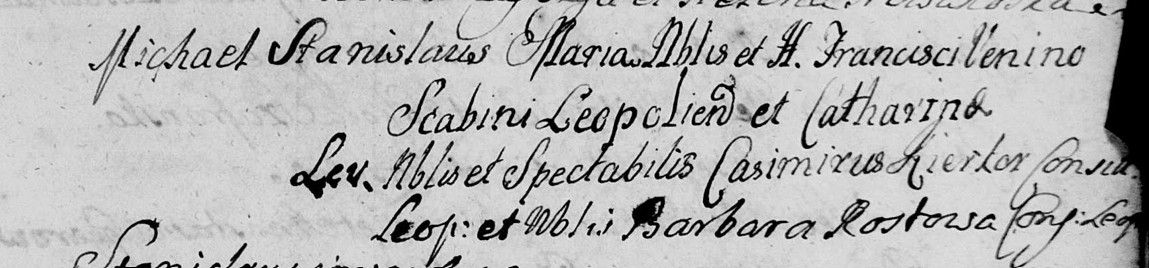 Michael Stanislaus Maria Nblis et H. Francisci Venino
Scabini Leopolien et Catharina
Lev. Nblis et Spectabilis Casimirus Kierkor Consul.
Leop: et Nblis Barbara Rostowa Conj: Leop
Stanislaus